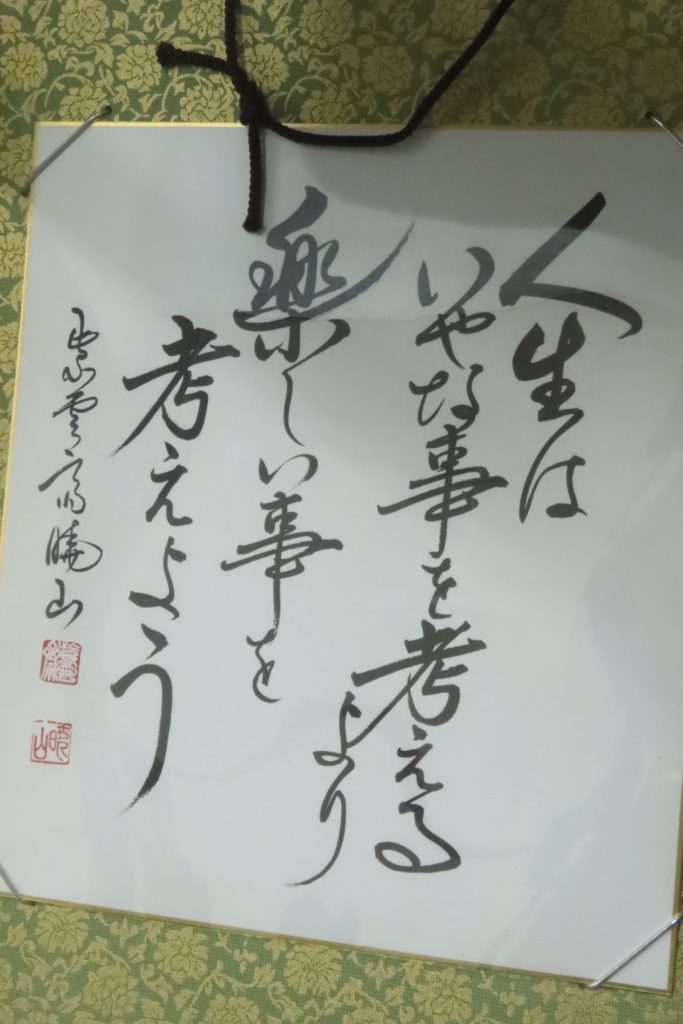 人生は
いやな事を考える
より
楽しい事を
考えよう
紫雲斎暁山